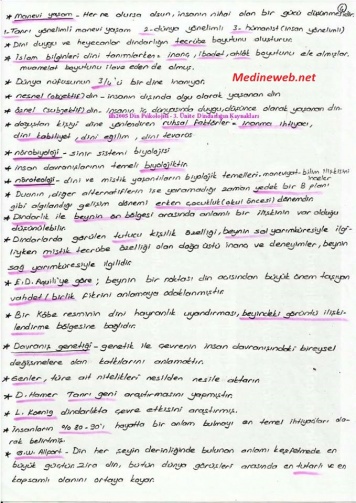 * manevi yaşam - Her ne olursa olsun, insanın nihai olan bir gücü düşünmesidir.
1-Tanrı yönelimli manevi yaşam 2-dünya yönelimli 3- hümanist (insan yönelimli)
* Dini duygu ve heyecanlar dindarlığın tecrübe boyutunu oluşturur.
* İslam bilginleri dini tanımlarken= inanç, ibadet, ahlak boyutunu ele almışlar.
muamelat boyutunu ilave eden de olmuş.
* Dünya nüfusunun 3/4'ü bir dine inanıyor.
Medineweb.net
* nesnel (objektif) din- insanın dışında olgu olarak yaşanan din
* öznel (subjektif) din- insanın iç dünyasında duygu, düşünce olarak yaşanan din
ilh2005 Din Psikolojisi - 3. Ünite Dindarlığın Kaynakları
* dışarıdan kişiyi dine yönlendiren ruhsal faktörler= inanma ihtiyacı,
dini kabiliyet, dini eğilim, dini tevarüs
* nörobiyoloji - sinir sistemi biyolojisi
* insan davranışlarının temeli biyolojiktir.
* nöroteoloji- dini ve mistik yaşantıların biyolojik temelleri. maneviyat-bilim ilişkisini inceler
* Duanın, diğer alternatiflerin işe yaramadığı zaman yedek bir B planı
gibi algılandığı gelişim dönemi erken çocukluk (okul öncesi) dönemdir
* Dindarlık ile beynin ön bölgesi arasında anlamlı bir ilişkinin var olduğu
düşünülebilir.
* Dindarlarda görülen tutucu kişilik özelliği, beynin sol yarımküresiyle ilgi-
liyken mistik tecrübe özelliği olan doğa üstü inanç ve deneyimler, beynin
sağ yarımküresiyle ilgilidir.
* E.D. Aquili'ye göre; beynin bir noktası din açısından büyük önem taşıyan
vahdet / birlik fikrini anlamaya odaklanmıştır
* Bir Kâbe resminin dini hayranlık uyandırması, beyindeki görüntü ilişki-
lendirme bölgesine bağlıdır.
* Davranış genetiği- genetik ile çevrenin insan davranışındaki bireysel
değişmelere olan katkılarını anlamaktır.
* Genler, türe ait nitelikleri nesilden nesile aktarır
* D. Hamer Tanrı geni araştırmasını yapmıştır.
* L. Koenig dindarlıkta çevre etkisini araştırmış.
* İnsanların %80-90'ı hayatta bir anlam bulmayı en temel ihtiyaçları ola-
rak belirtmiş.
* G.W. Allport - Din her şeyin derinliğinde bulunan anlamı keşfetmede en
büyük güçtür. Zira din, bütün dünya görüşleri arasında en tutarlı ve en
kapsamlı olanını ortaya koyar.